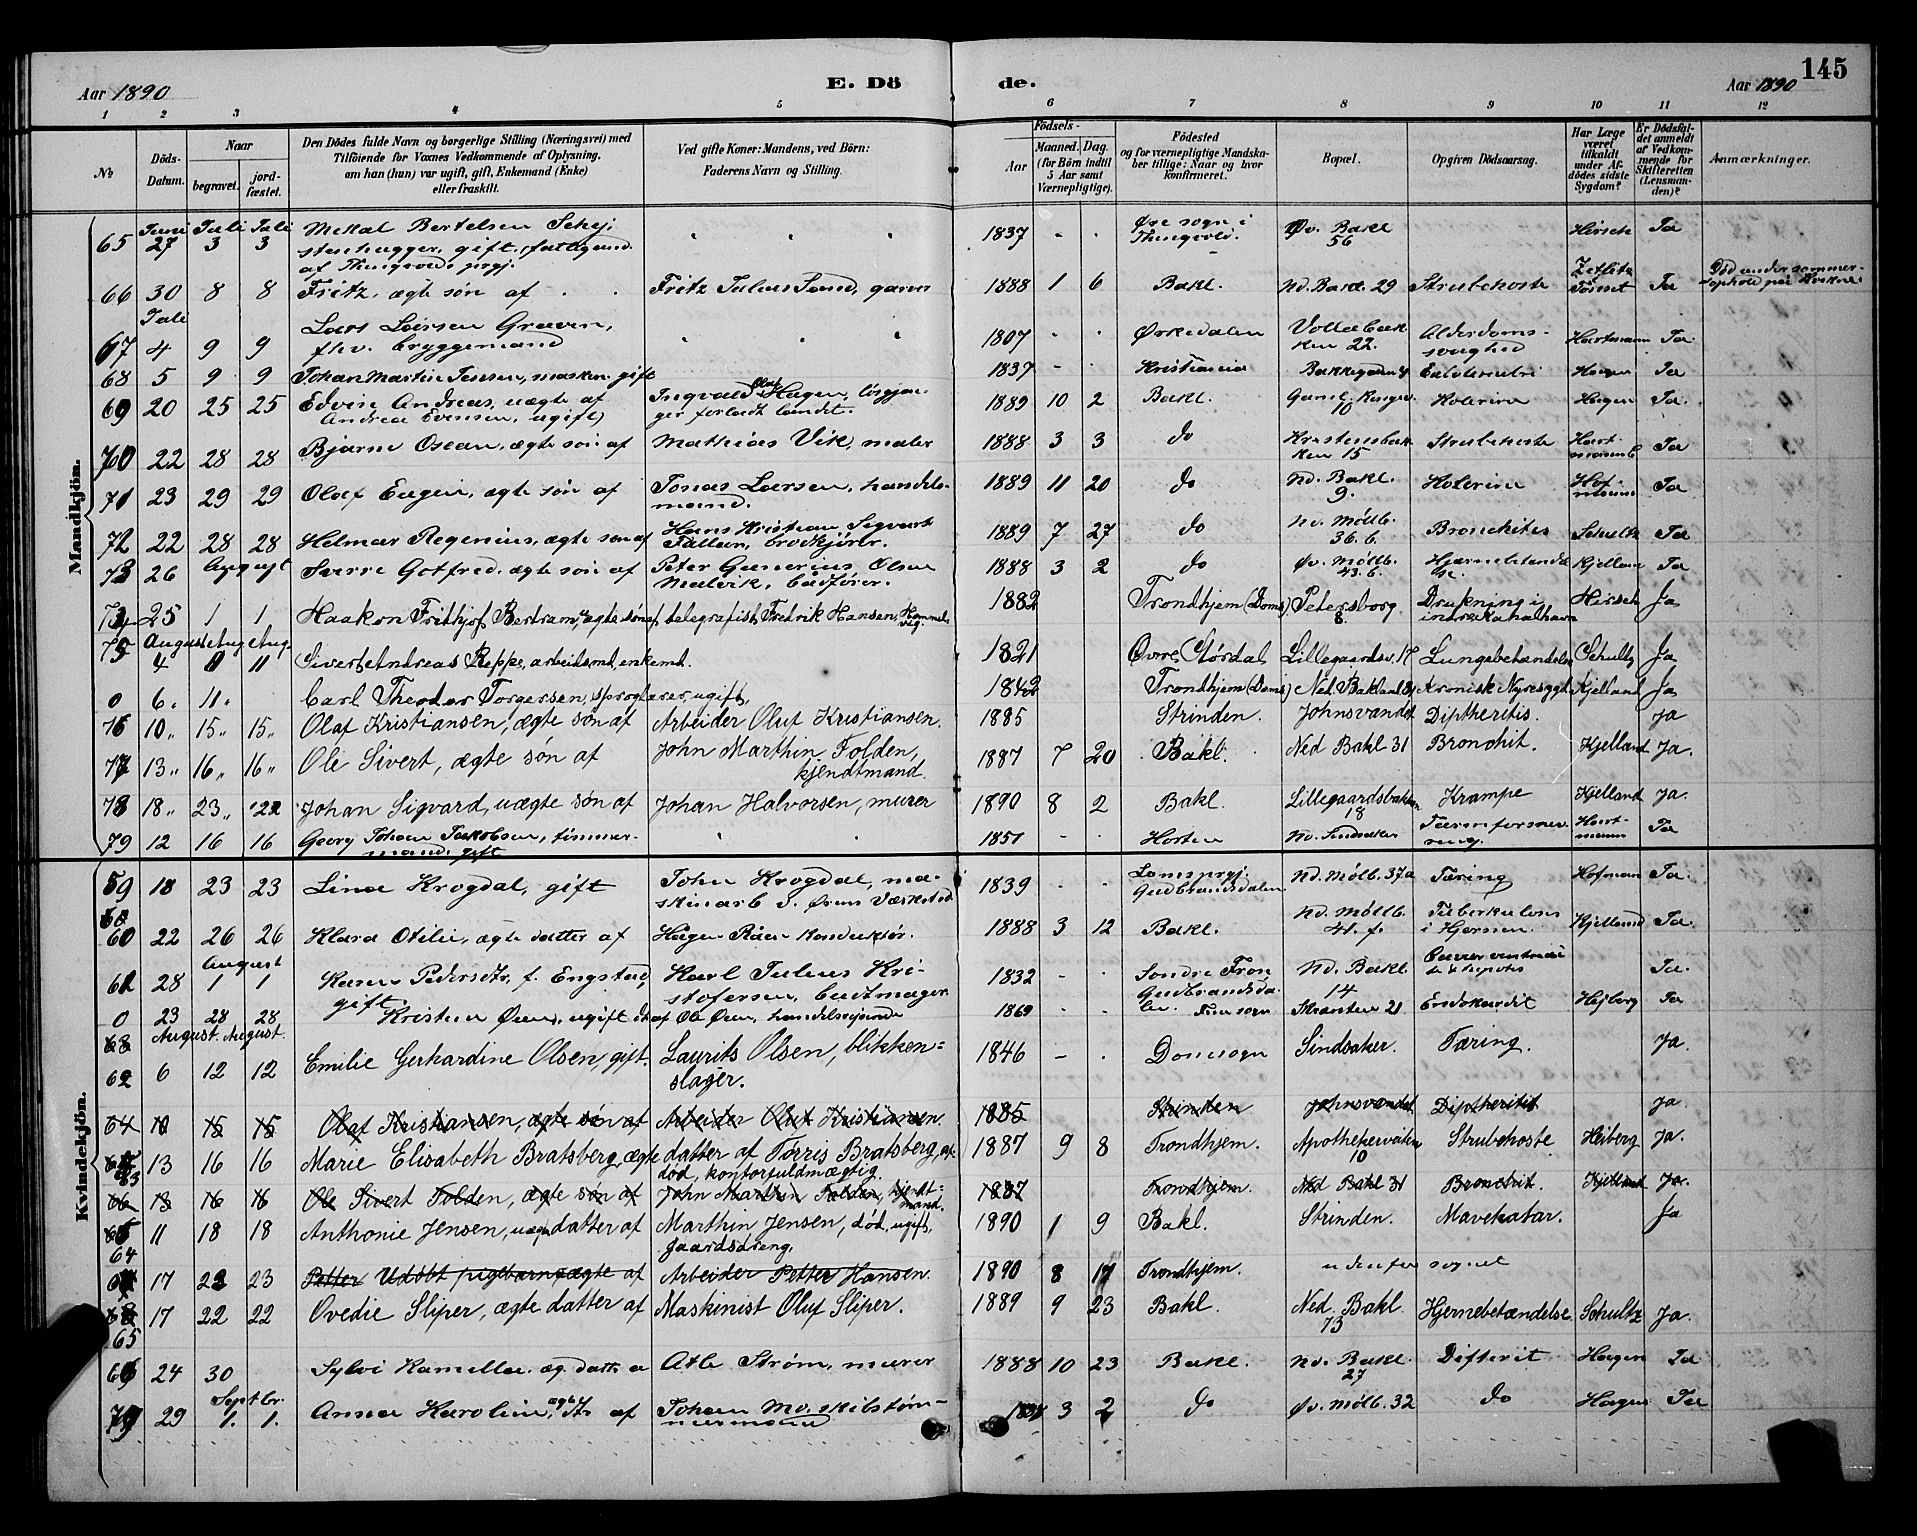 145
Aar 1890
E. Dö
de.
Aar 1890
1 2 3 4 5 6 7 8 9 10 11 12
No
Döds-
Datum.
Naar
begravet.
jord-
fæstet.
Den Dödes fulde Navn og borgerlige Stilling (Næringsvei) med
Tilföiende for Voxnes Vedkommende af Oplysning,
om han (hun) var ugift, gift, Enkemand (Enke)
eller fraskilt.
Ved gifte Koner: Mandens, ved Börn:
Faderens Navn og Stilling.
Födsels-
Aar
Maaned. Dag.
(for Börn indtil
5 Aar samt
Værnepligtige).
Födested
og for værnepligtige Mandska-
ber tillige: Naar og hvor
konfirmeret.
Bopæl.
Opgiven Dödsaarsag.
Har Læge
været
tilkaldt
under Af-
dödes sidste
Sygdom?
Er Dödsfal-
det anmeldt
af Vedkom-
mende for
Skifteretten
(Lensman-
den)?
Anmærkninger.
Mandkjön.
Juni Juli Juli
65 27 3 3 Mikal Bertelsen 1837 Øre sogn i Thingvold. Øv. Bakl 56 Hirsch Ja
stenhugger, gift,
af Thingvold prgj.
66 30 8 8 Fritz, ægte søn af Fritz Julius Sand, garver 1888 1 6 Bakl. Nd. Bakl. 29 Strubehoste Ja
Død under sommer-
ophold paa
Juli
67 4 9 9 Lars Larsen Graven, 1807 Ørkedalen 22. Alderdoms- Hartmann Ja
flv. bryggemand svaghed
68 5 9 9 Johan Martin Jensen, gift 1837 Kristiania Hagen Ja
69 20 25 25 Edvin Andreas, uægte af Ingvald Olai Hagen, løsgjæn- 1889 10 2 Bakl. 10 Kolerine Hagen Ja.
Andrea Evensen, ugift ger forladt landet.
70 22 28 28 Bjarne Oscar, ægte søn af Mathias Vik, maler 1888 3 3 do Kristensbak- Strubehoste Hart- Ja
ken 15
71 23 29 29 Olaf Eugen, ægte søn af Jonas Larsen, handels- 1889 11 20 do Nd. Bakl. 9. Kolerine Hof- Ja
mand.
72 22 28 28 Helmer Regenius, ægte søn af Hans Kristian Sigvart 1889 7 27 do Nd. Møllb. 36.b. Bronchites Schultz Ja
August
73 26 Sverre Gotfred, ægte søn af Peter Gunerius Olsen 1888 3 2 do Øv. Møllb. 43.b. Kjelland Ja
Malvik, baadfører.
74 25 1 1 Haakon Frithjof Bertram, ægte søn af telegrafist Fredrik Hansen 1882 Trondhjem (Doms) Petersborg 8. Drukning i Hirsch Ja
indre Kanalhavn
August Aug Aug.
75 4 11 11 Sivert Andreas Reppe, arbeidsmd, enkemd. 1821 Øvre Størdal Lillegaardsv. 17 Lungebetændelse Schultz Ja
0 6. 11. Carl Theodor Torgersen, sproglærer, ugift, 1842 Trondhjem (Doms) Ned. Bakland 84 Kronisk Nyresygd. Kjelland Ja
76 10 15 15 Olaf Kristiansen, ægte søn af Arbeider Oluf Kristiansen. 1885 Strinden. Johnsvandet Diptheritis. Ja
77 13 16 16 Ole Sivert, ægte søn af John Marthin Folden, 1887 7 20 Bakl. Ned Bakl 31 Bronchit. Kjelland Ja.
kjendtmand.
78 18 23 22 Johan Sigvard, uægte søn af Johan Halvorsen, murer 1890 8 2 Bakl. Lillegaardsbakken 18 Krampe Kjelland Ja.
79 12 16 16 Georg Johan Jakobsen, tømmer- 1851 Horten Ja
mand, gift
Kvindekjön.
59 18 23 23 Lina Krogdal, gift John Krogdal, ma- 1839 Lomsprgj. Nd. Møllb. 37a Tæring Hofman Ja.
skinarb Gudbrandsdalen
60 22 26 26 Klara Otilie, ægte datter af Konduktør. 1888 3 12 Bakl. Nd. Møllb. 41.f. Tuberkulose Kjelland Ja.
i Hjernen.
August
61 28 1 1 Karen Pedersdtr, f. Engstad, Karl Julius Kri- 1832 Søndre Fron Nd. Bakl. 14 Ja.
gift stofersen, buntmager Gudbrandsda-
0 23 28 28 Kristin Øien, ugift dt af Ole Øien, 1869 21 Endokardit Ja
August. August.
62 6 12 12 Emilie Gerhardine Olsen, gift. Laurits Olsen, blikken- 1846 Domsogn Sindsaker. Tæring. Ja.
slager.
64 10 15 15 Olaf Kristiansen, ægte søn af Arbeider Oluf Kristiansen. 1885 Strinden Johnsvandet Diptheritit Ja
63 13 16 16 Marie Elisabeth Bratsberg, ægte datter af Torris Bratsberg, af- 1887 9 8 Trondhjem. 10 Strubehoste Heiberg Ja.
død, kontorfuldmægtig.
66 13 16 16 Ole Sivert Folden, ægte søn af John Marthin Folden, kjendt- 1887 Trondhjem. Ned Bakl 31 Bronchit. Kjelland Ja.
mand.
64 11 18 18 Anthonie Jensen, uægte datter af Marthin Jensen, død, ugift, 1890 1 9 Bakl. Strinden. Mavekatar. Ja
gaardsdreng,
17 23 23 Petter Udøbt pigebarn, ægte af Arbeider Petter Hansen. 1890 8 17 Trondhjem. udenfor sognet
65 17 22 22 Ovedie Sliper, ægte datter af Maskinist Oluf Sliper. 1889 9 23 Bakl. Ned. Bakl. 73 Hjernebetændelse. Schultz Ja.
24 30 Sylvi Kamilla, æg. datt. a Atle Strøm, murer 1888 10 23 Bakl. Nd. Bakl. 27 Difterit Hagen Ja
Septbr.
29 1. 1. Anna Karoline, ægt. dtr af Johan 3 2 do Øv. Møllb. 32 do Hagen Ja